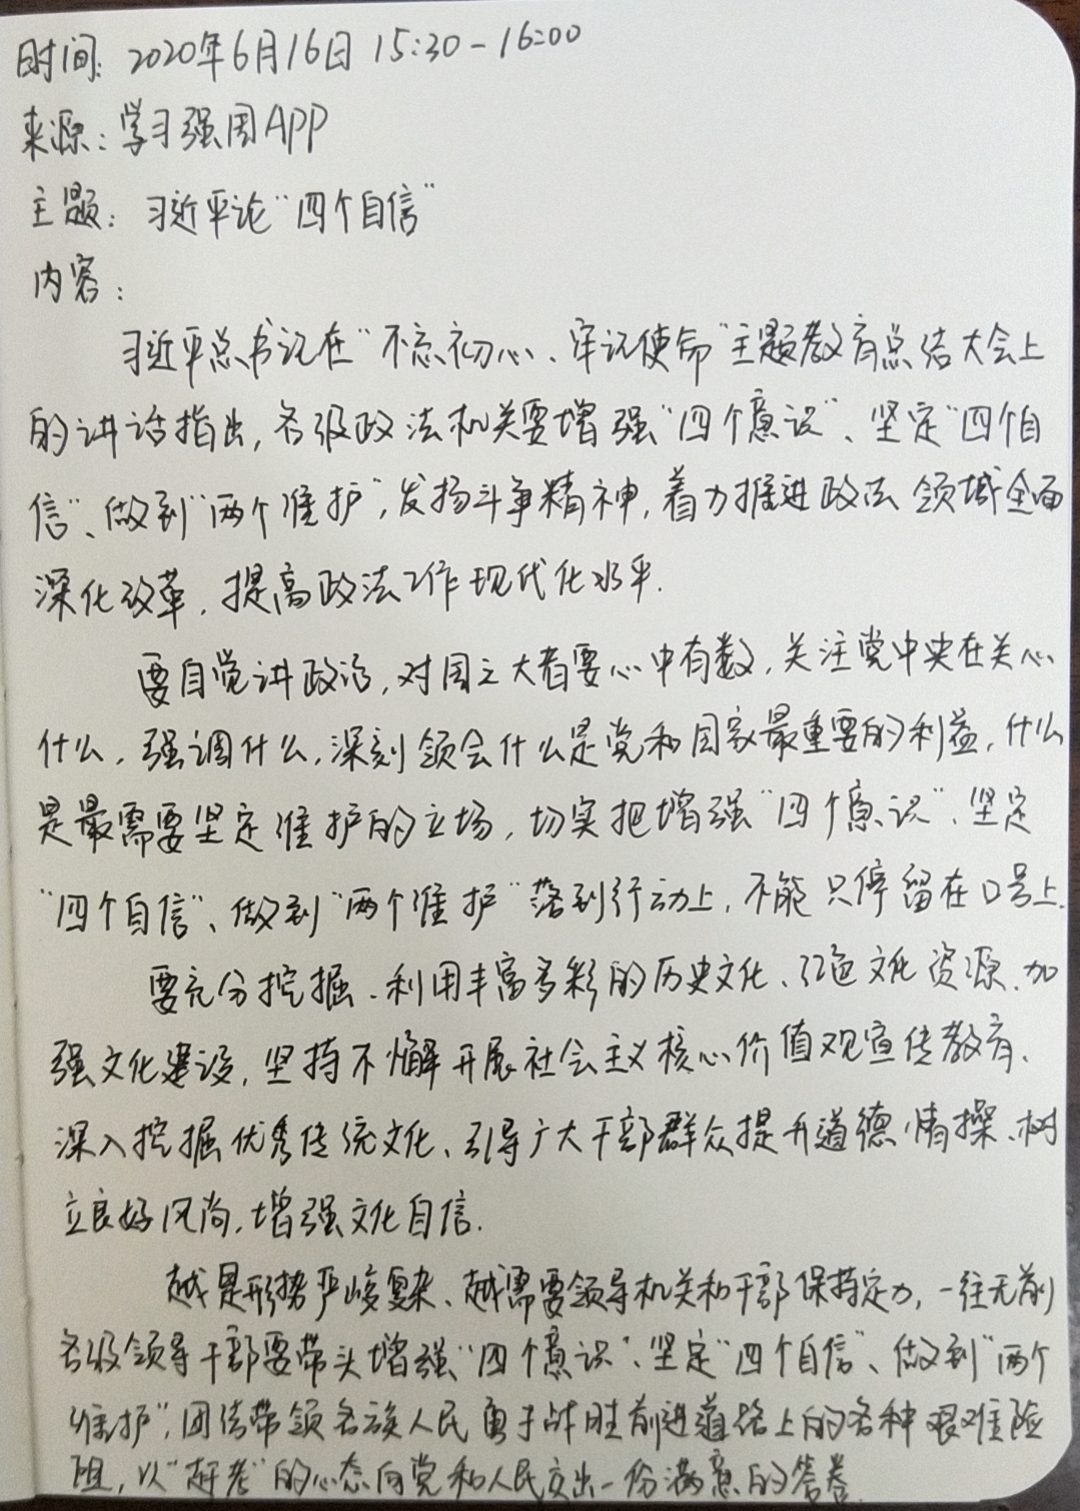 时间: 2020年6月16日 15:30-16:00
来源:学习强国APP
主题:习近平论“四个自信”
内容:
习近平总书记在“不忘初心、牢记使命”主题教育总结大会上
的讲话指出,各级政法机关要增强“四个意识”、坚定“四个自
信”、做到“两个维护”,发扬斗争精神,着力推进政法领域全面
深化改革,提高政法工作现代化水平.
要自觉讲政治,对国之大者要心中有数,关注党中央在关心
什么,强调什么,深刻领会什么是党和国家最重要的利益,什么
是最需要坚定维护的立场,切实把增强“四个意识”、坚定
“四个自信”、做到“两个维护”落到行动上,不能只停留在口号上.
要充分挖掘、利用丰富多彩的历史文化、红色文化资源、加
强文化建设,坚持不懈开展社会主义核心价值观宣传教育、
深入挖掘优秀传统文化、引导广大干部群众提升道德情操、树
立良好风尚,增强文化自信.
越是形势严峻复杂、越需要领导机关和干部保持定力,一往无前
各级领导干部要带头增强“四个意识”、坚定“四个自信”、做到“两个
维护”,团结带领各族人民勇于战胜前进道路上的各种艰难险
阻,以“赶考”的心态向党和人民交出一份满意的答卷.